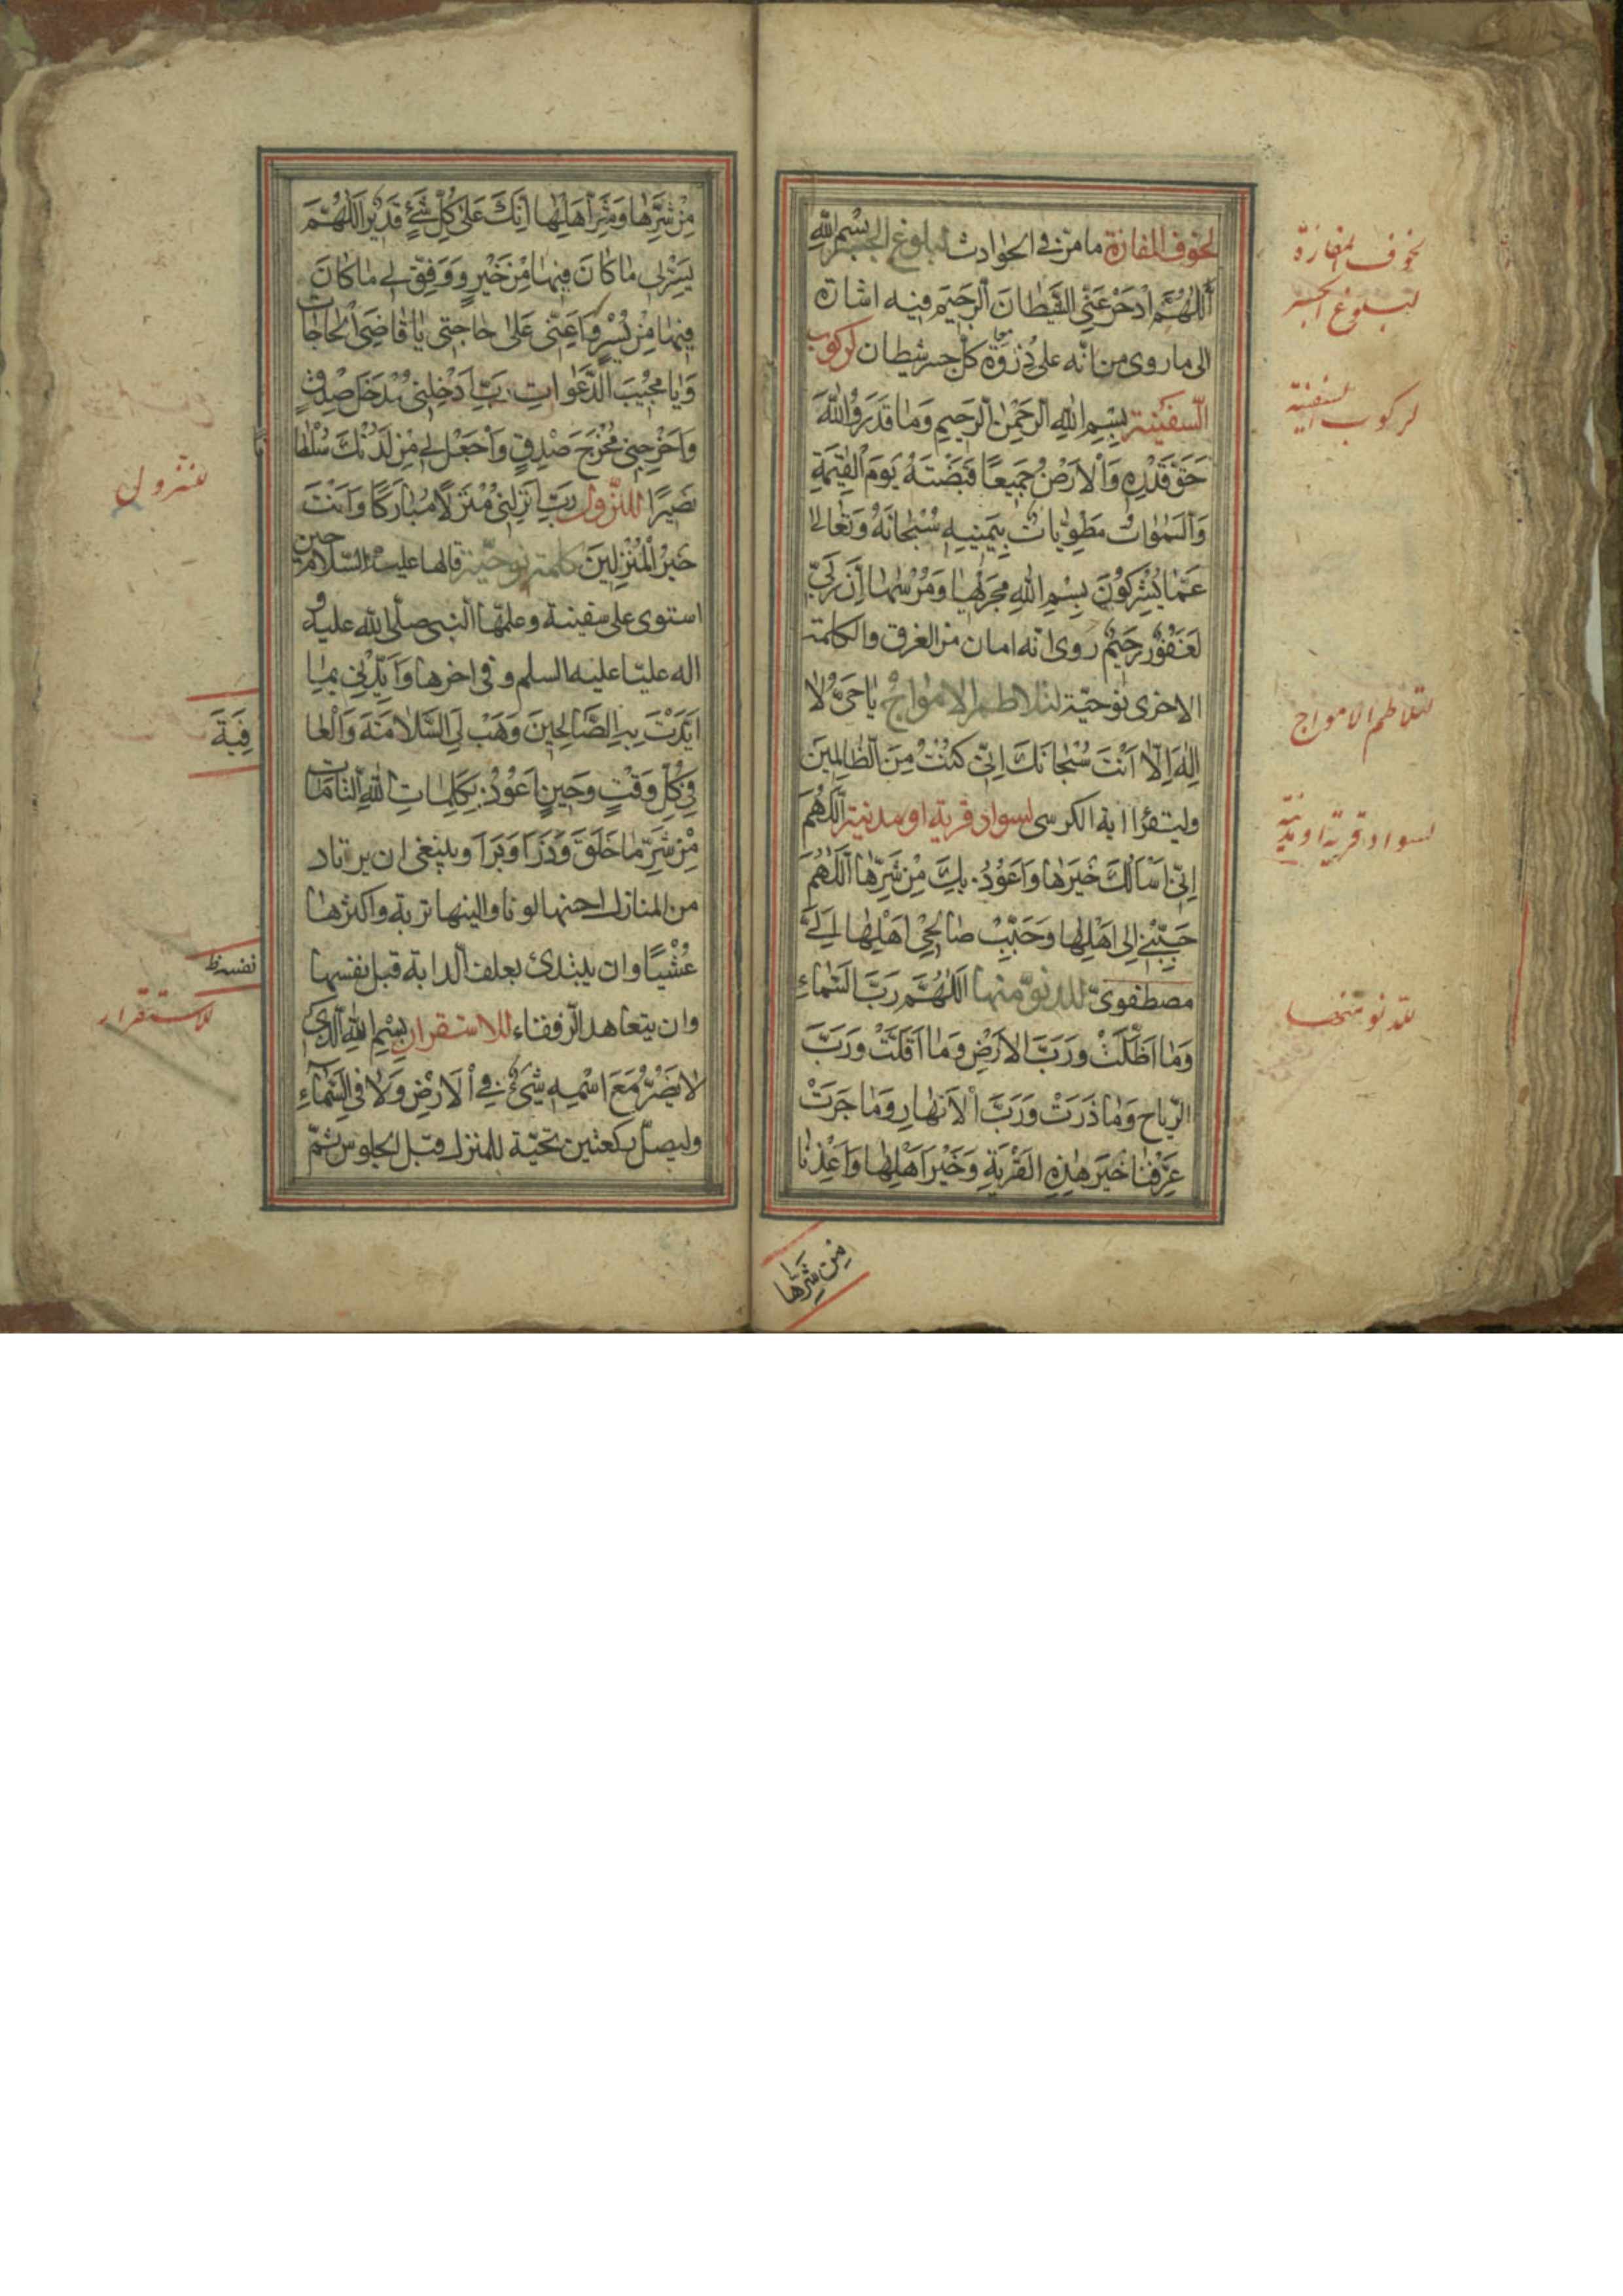 لخوف المفازة ما مرّ في الحوادث لبلوغ الجسر بِسْمِ اللهِ
اَللّٰهُمَّ ادْحَرْ عَنِّي الشَّيْطَانَ الرَّجِيمَ فيه اشارة
الى ما روى من انّه على ذروة كلّ جسر شيطان لركوب
السّفينة بِسْمِ اللهِ الرَّحْمٰنِ الرَّحِيمِ وَمَا قَدَرُوا اللهَ
حَقَّ قَدْرِهِ وَالْاَرْضُ جَمِيعًا قَبْضَتُهُ يَوْمَ الْقِيٰمَةِ
وَالسَّمٰوَاتُ مَطْوِيَّاتٌ بِيَمِينِهِ سُبْحَانَهُ وَتَعَالٰى
عَمَّا يُشْرِكُونَ بِسْمِ اللهِ مَجْرٰىهَا وَمُرْسٰىهَا اِنَّ رَبِّي
لَغَفُورٌ رَحِيمٌ روى انّه امان من الغرق والكلمة
الاخرى نوحيّة لتلاطم الامواج يَا حَيُّ لَا
اِلٰهَ اِلَّا اَنْتَ سُبْحَانَكَ اِنِّي كُنْتُ مِنَ الظَّالِمِينَ
وليقرا اية الكرسى لسواد قرية او مدنية اَللّٰهُمَّ
اِنِّي اَسْاَلُكَ خَيْرَهَا وَاَعُوذُ بِكَ مِنْ شَرِّهَا اَللّٰهُمَّ
حَبِّبْنِي اِلٰى اَهْلِهَا وَحَبِّبْ صَالِحِي اَهْلِهَا اِلَيَّ
مصطفوىّ للدنوّ منها اَللّٰهُمَّ رَبَّ السَّمَاءِ
وَمَا اَظَلَّتْ وَرَبَّ الْاَرْضِ وَمَا اَقَلَّتْ وَرَبَّ
الرِّيَاحِ وَمَا ذَرَتْ وَرَبَّ الْاَنْهَارِ وَمَا جَرَتْ
عَرِّفْنَا خَيْرَ هٰذِهِ الْقَرْيَةِ وَخَيْرَ اَهْلِهَا وَاَعِذْنَا
مِنْ شَرِّهَا
لخوف المفازة
لبلوغ الجسر
لركوب السفينة
لتلاطم الامواج
لسواد قرية او مدنية
للدنو منها
مِنْ شَرِّهَا وَشَرِّ اَهْلِهَا اِنَّكَ عَلٰى كُلِّ شَيْءٍ قَدِيرٌ اَللّٰهُمَّ
يَسِّرْ لِي مَا كَانَ فِيهَا مِنْ خَيْرٍ وَوَفِّقْ لِي مَا كَانَ
فِيهَا مِنْ يُسْرٍ وَاَعِنِّي عَلٰى حَاجَتِي يَا قَاضِيَ الْحَاجَاتِ
وَيَا مُجِيبَ الدَّعَوَاتِ رَبِّ اَدْخِلْنِي مُدْخَلَ صِدْقٍ
وَاَخْرِجْنِي مُخْرَجَ صِدْقٍ وَاجْعَلْ لِي مِنْ لَدُنْكَ سُلْطَانًا
نَصِيرًا للنّزول رَبِّ اَنْزِلْنِي مُنْزَلًا مُبَارَكًا وَاَنْتَ
خَيْرُ الْمُنْزِلِينَ كلمة نوحيّة قالها عليه السّلام حين
استوى على سفينة وعلمها النبى صلّى الله عليه و
اله عليّا عليه السلم وفى اخرها وَاَيِّدْنِي بِمَا
اَيَّدْتَ بِهِ الصَّالِحِينَ وَهَبْ لِيَ السَّلَامَةَ وَالْعَا
فِيَةَ
فِي كُلِّ وَقْتٍ وَحِينٍ اَعُوذُ بِكَلِمَاتِ اللهِ التَّامَّاتِ
مِنْ شَرِّ مَا خَلَقَ وَذَرَاَ وَبَرَاَ وينبغى ان يرتاد
من المنازل احسنها لونا والينها تربة واكثرها
عُشْبًا وان يبتدئ بعلف الدابة قبل نفسها
نفسه ظ
وان يتعاهد الرّفقاء للاستقرار بِسْمِ اللهِ الَّذِي
لَا يَضُرُّ مَعَ اسْمِهِ شَيْءٌ فِي الْاَرْضِ وَلَا فِي السَّمَاءِ
وليصلّ ركعتين تحيّة للمنزل قبل الجلوس ثمّ
للنزول
للاستقرار